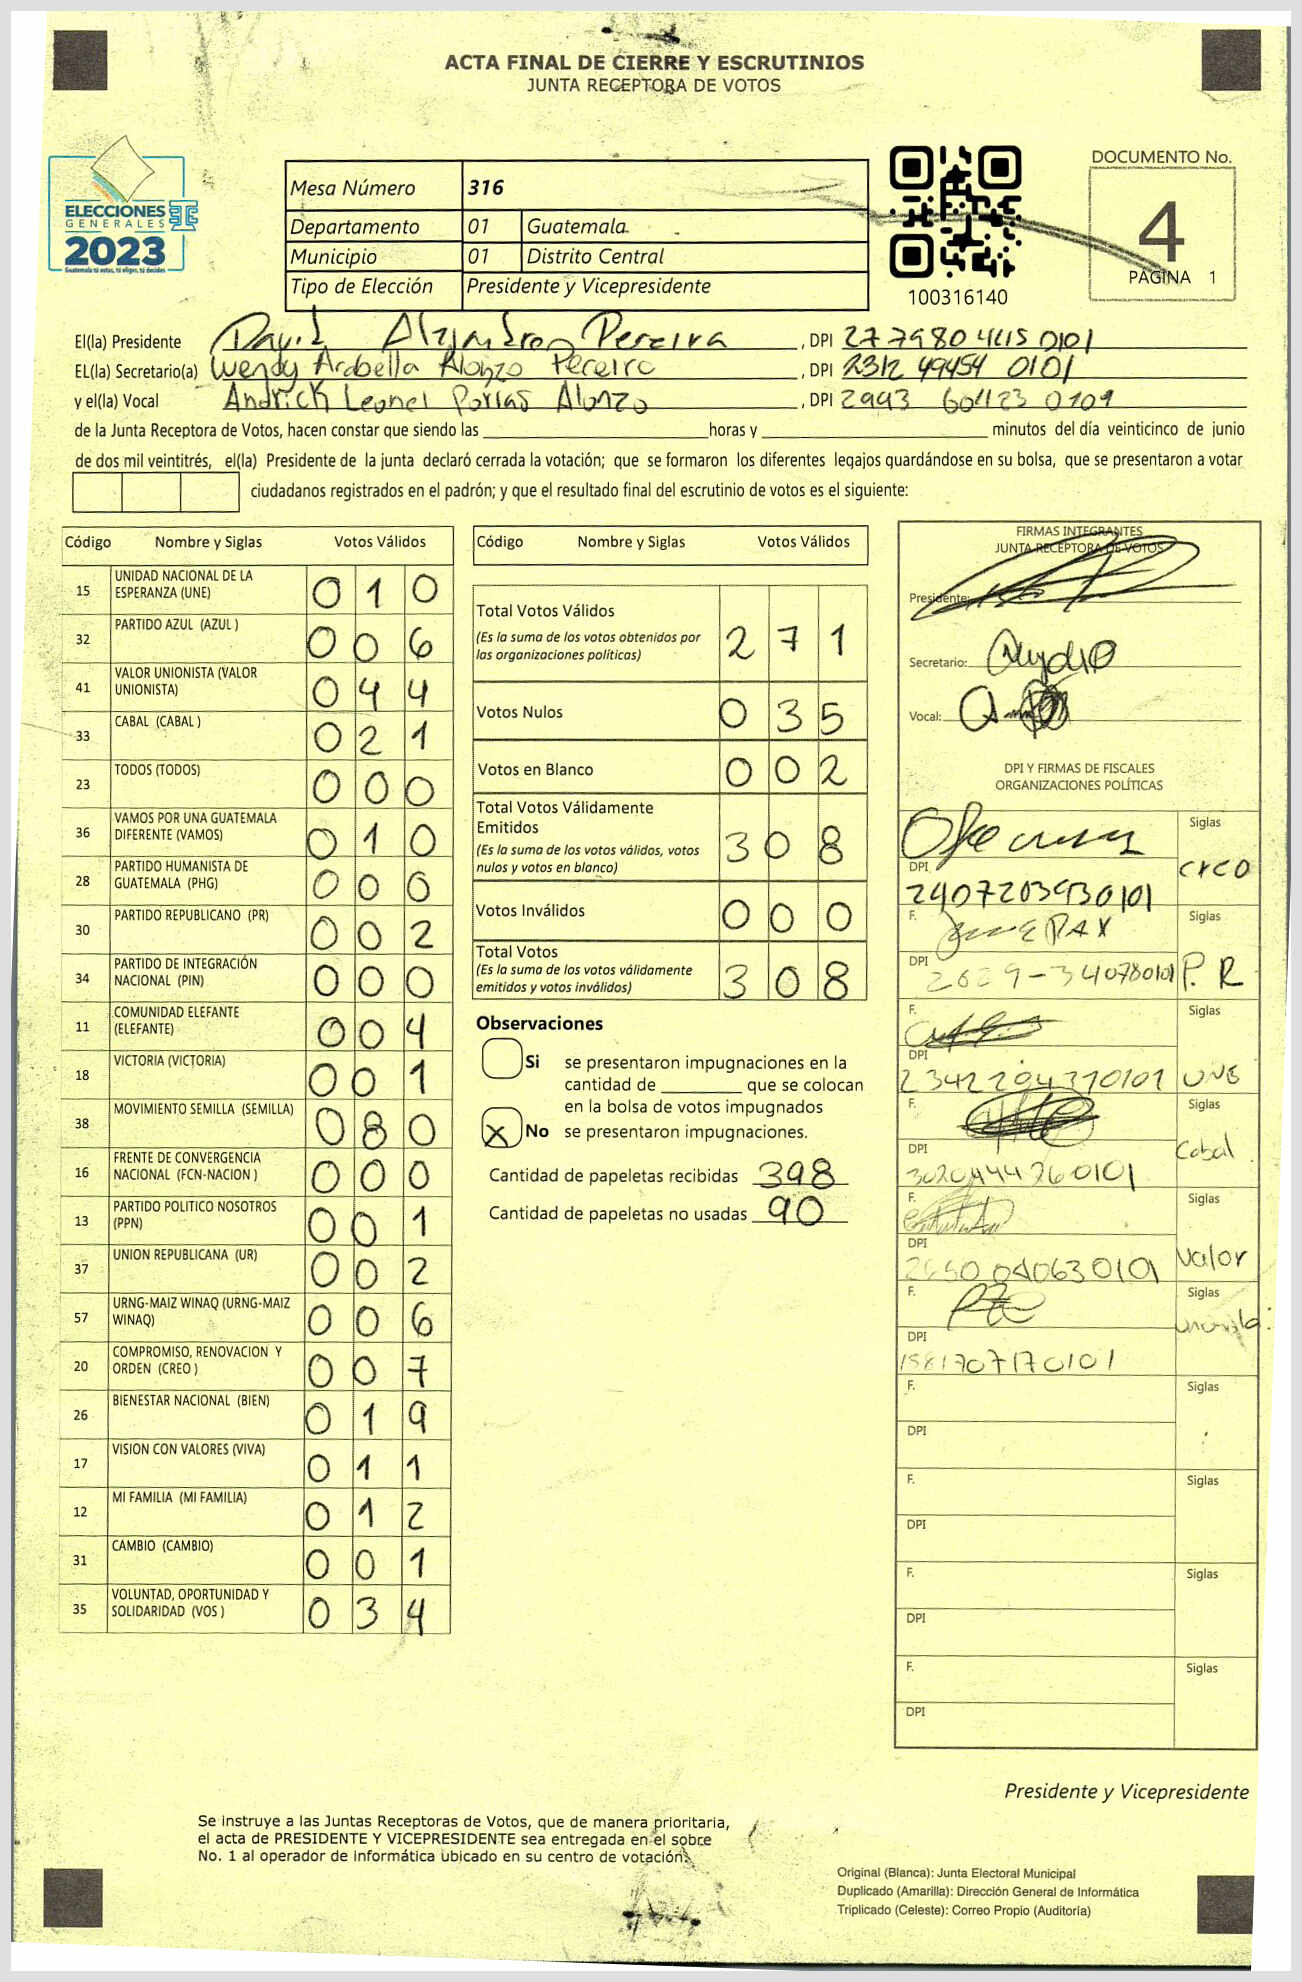 ACTA FINAL DE CIERRE Y ESCRUTINIOS
JUNTA RECEPTORA DE VOTOS
ELECCIONES
GENERALES
2023
Guatemala tú votas, tú eliges, tú decides
Mesa Número 316
Departamento 01 Guatemala
Municipio 01 Distrito Central
Tipo de Elección Presidente y Vicepresidente
100316140
DOCUMENTO No.
4
PÁGINA 1
El(la) Presidente David Alejandro Pereira, DPI 2779804415 0101
EL(la) Secretario(a) Wendy Arabella Alonzo Pereira, DPI 2312 49454 0101
y el(la) Vocal Andrick Leonel Porras Alonzo, DPI 2993 604123 0101
de la Junta Receptora de Votos, hacen constar que siendo las horas y minutos del día veinticinco de junio
de dos mil veintitrés, el(la) Presidente de la junta declaró cerrada la votación; que se formaron los diferentes legajos guardándose en su bolsa, que se presentaron a votar
ciudadanos registrados en el padrón; y que el resultado final del escrutinio de votos es el siguiente:
Código Nombre y Siglas Votos Válidos
15 UNIDAD NACIONAL DE LA ESPERANZA (UNE) 0 1 0
32 PARTIDO AZUL (AZUL ) 0 0 6
41 VALOR UNIONISTA (VALOR UNIONISTA) 0 4 4
33 CABAL (CABAL ) 0 2 1
23 TODOS (TODOS) 0 0 0
36 VAMOS POR UNA GUATEMALA DIFERENTE (VAMOS) 0 1 0
28 PARTIDO HUMANISTA DE GUATEMALA (PHG) 0 0 0
30 PARTIDO REPUBLICANO (PR) 0 0 2
34 PARTIDO DE INTEGRACIÓN NACIONAL (PIN) 0 0 0
11 COMUNIDAD ELEFANTE (ELEFANTE) 0 0 4
18 VICTORIA (VICTORIA) 0 0 1
38 MOVIMIENTO SEMILLA (SEMILLA) 0 8 0
16 FRENTE DE CONVERGENCIA NACIONAL (FCN-NACION ) 0 0 0
13 PARTIDO POLITICO NOSOTROS (PPN) 0 0 1
37 UNION REPUBLICANA (UR) 0 0 2
57 URNG-MAIZ WINAQ (URNG-MAIZ WINAQ) 0 0 6
20 COMPROMISO, RENOVACION Y ORDEN (CREO ) 0 0 7
26 BIENESTAR NACIONAL (BIEN) 0 1 9
17 VISION CON VALORES (VIVA) 0 1 1
12 MI FAMILIA (MI FAMILIA) 0 1 2
31 CAMBIO (CAMBIO) 0 0 1
35 VOLUNTAD, OPORTUNIDAD Y SOLIDARIDAD (VOS ) 0 3 4
Código Nombre y Siglas Votos Válidos
Total Votos Válidos 2 7 1
(Es la suma de los votos obtenidos por
las organizaciones políticas)
Votos Nulos 0 3 5
Votos en Blanco 0 0 2
Total Votos Válidamente
Emitidos 3 0 8
(Es la suma de los votos válidos, votos
nulos y votos en blanco)
Votos Inválidos 0 0 0
Total Votos 3 0 8
(Es la suma de los votos válidamente
emitidos y votos inválidos)
Observaciones
Si se presentaron impugnaciones en la
cantidad de que se colocan
en la bolsa de votos impugnados
X No se presentaron impugnaciones.
Cantidad de papeletas recibidas 398
Cantidad de papeletas no usadas 90
FIRMAS INTEGRANTES
JUNTA RECEPTORA DE VOTOS
Presidente:
Secretario:
Vocal:
DPI Y FIRMAS DE FISCALES
ORGANIZACIONES POLÍTICAS
Siglas
creo
DPI
2407203930101
F. Siglas
DPI P. R
F. Siglas
DPI
2342204370101 UNE
F. Siglas
DPI Cabal
F. Siglas
DPI Valor
F. Siglas
DPI
1581707170101
F. Siglas
DPI
F. Siglas
DPI
F. Siglas
DPI
F. Siglas
DPI
Presidente y Vicepresidente
Se instruye a las Juntas Receptoras de Votos, que de manera prioritaria,
el acta de PRESIDENTE Y VICEPRESIDENTE sea entregada en el sobre
No. 1 al operador de informática ubicado en su centro de votación.
Original (Blanca): Junta Electoral Municipal
Duplicado (Amarilla): Dirección General de Informática
Triplicado (Celeste): Correo Propio (Auditoría)